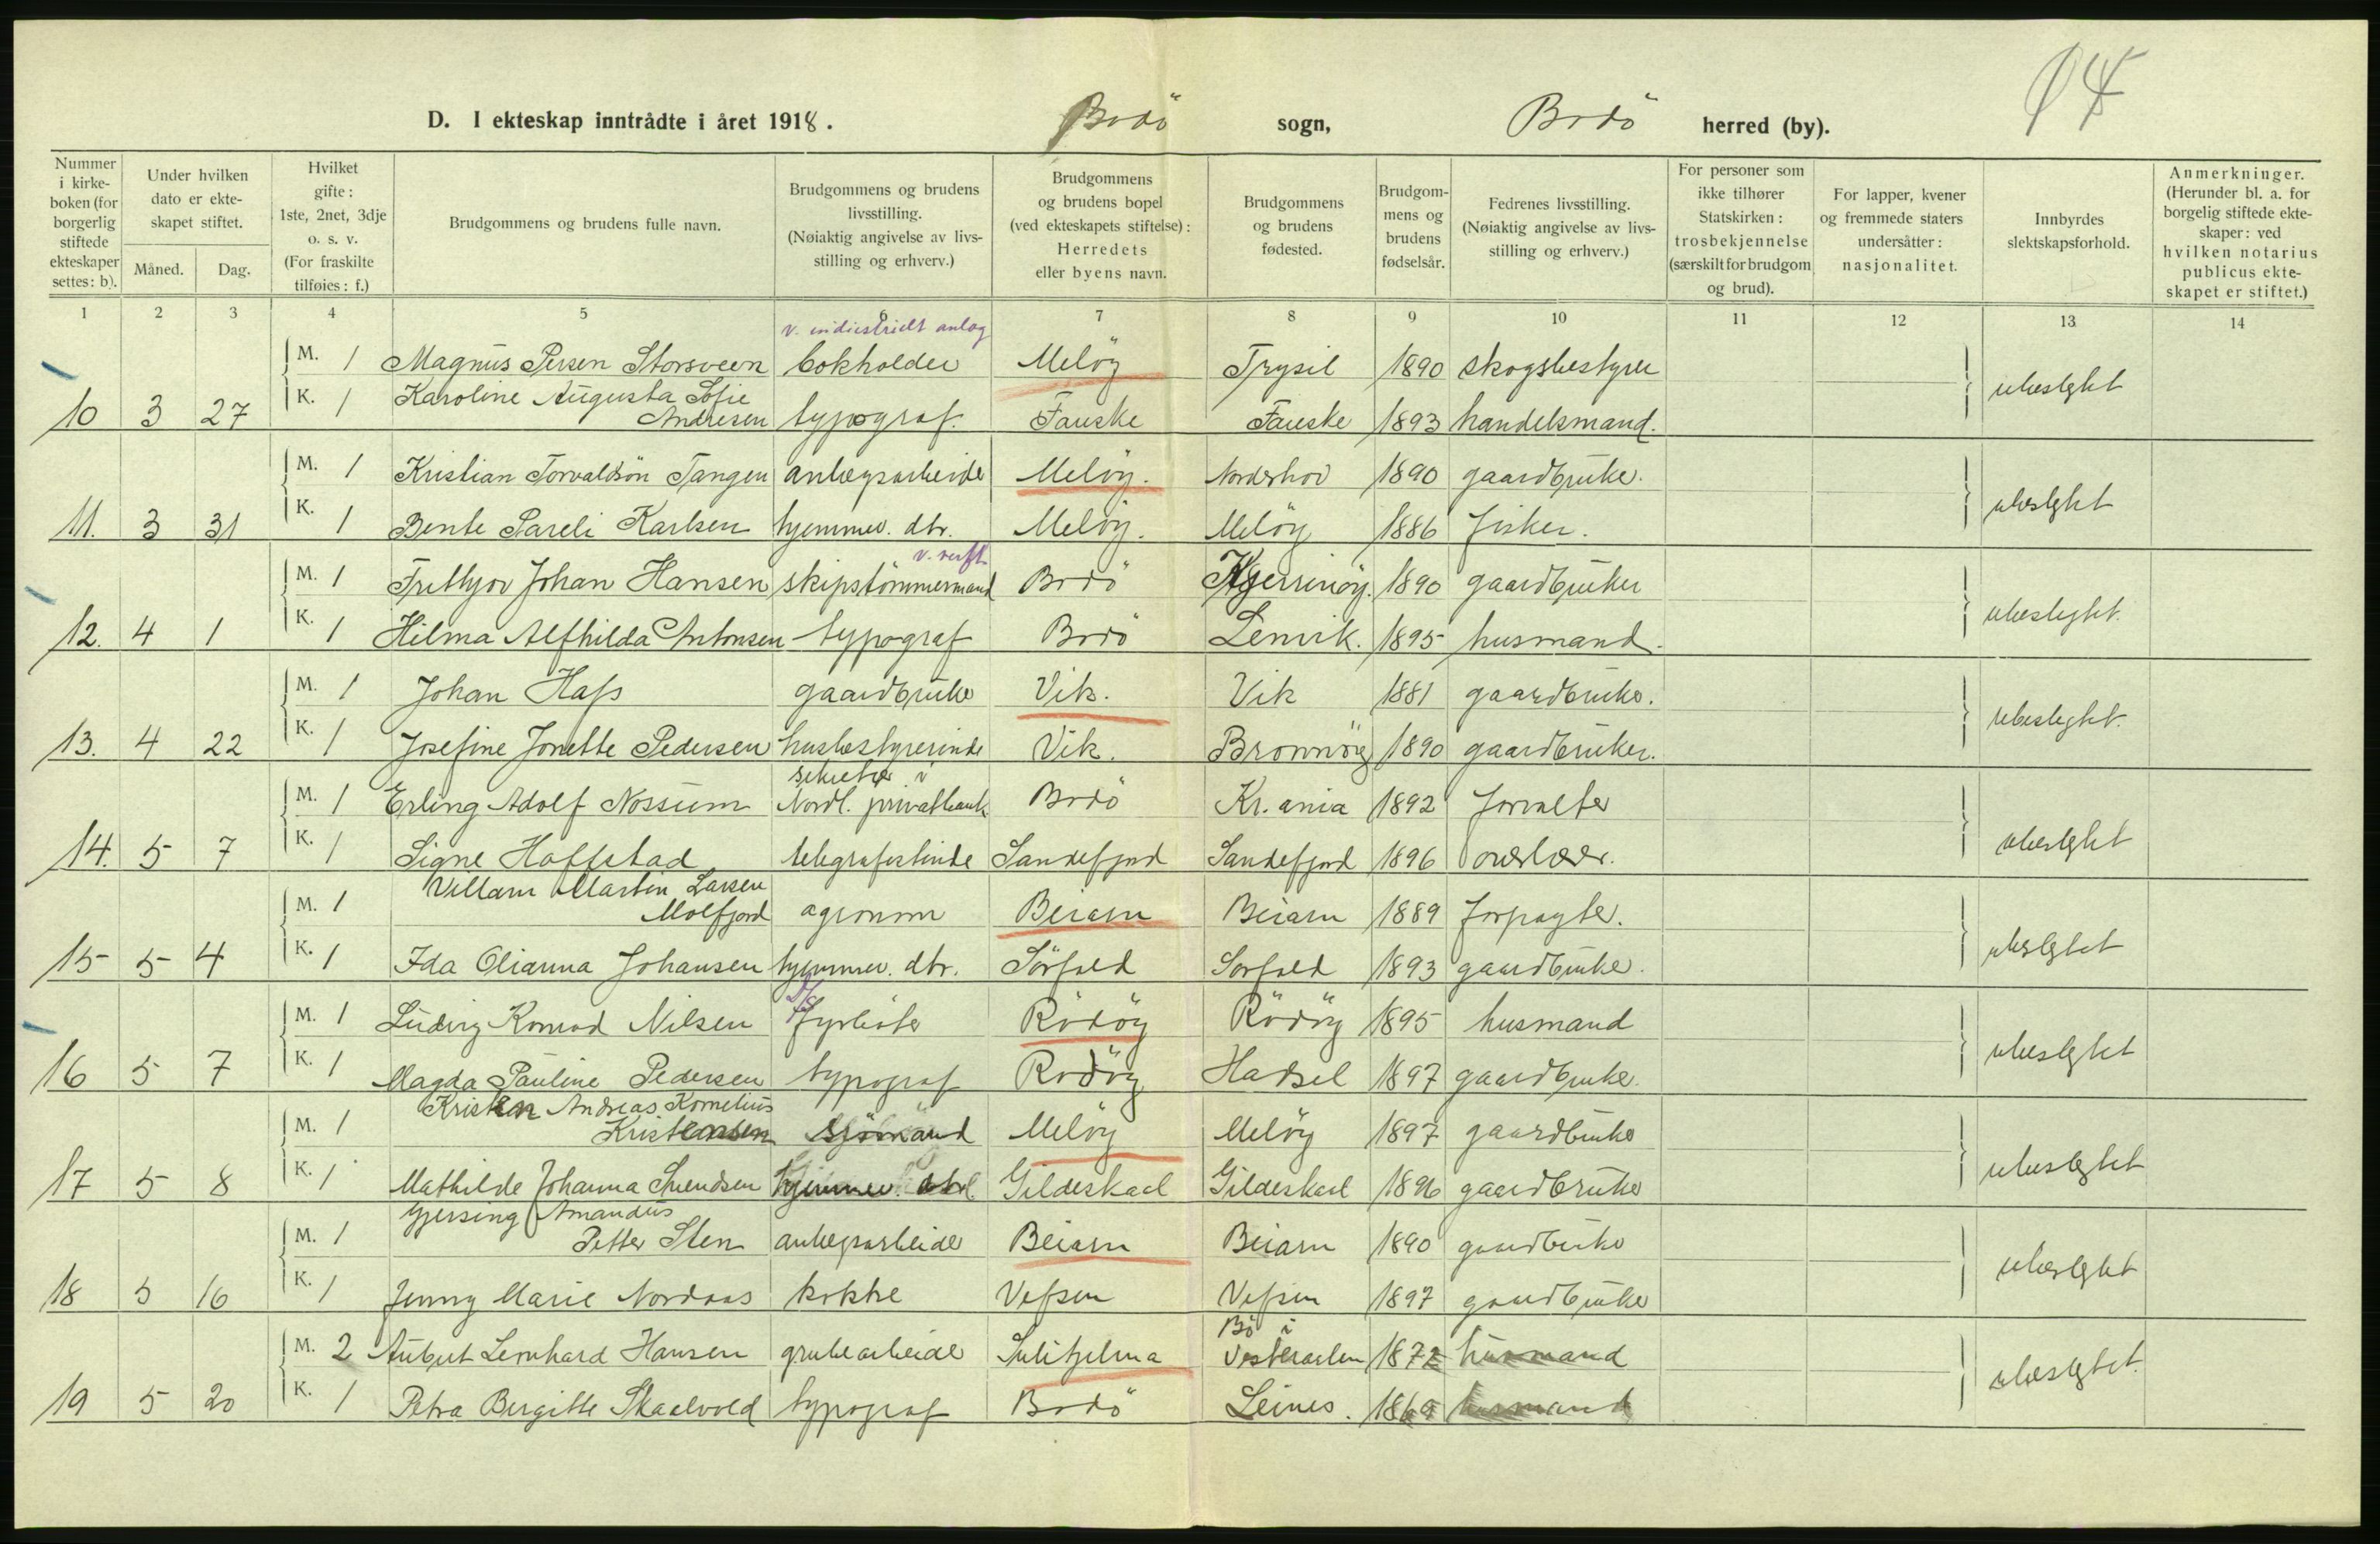 14
D. I ekteskap inntrådte i året 1918. Bodö sogn, Bodö herred (by).
Nummer i kirkeboken (for borgerlig stiftede ekteskaper settes: b).
Under hvilken dato er ekteskapet stiftet.
Måned.
Dag.
Hvilket gifte: 1ste, 2net, 3dje o. s. v. (For fraskilte tilføies: f.)
Brudgommens og brudens fulle navn.
Brudgommens og brudens livsstilling. (Nøiaktig angivelse av livsstilling og erhverv.)
Brudgommens og brudens bopel (ved ekteskapets stiftelse): Herredets eller byens navn.
Brudgommens og brudens fødested.
Brudgommens og brudens fødselsår.
Fedrenes livsstilling. (Nøiaktig angivelse av livsstilling og erhverv.)
For personer som ikke tilhører Statskirken: trosbekjennelse (særskilt for brudgom og brud).
For lapper, kvener og fremmede staters undersåtter: nasjonalitet.
Innbyrdes slektskapsforhold.
Anmerkninger. (Herunder bl. a. for borgelig stiftede ekteskaper: ved hvilken notarius publicus ekteskapet er stiftet.)
1 2 3 4 5 6 7 8 9 10 11 12 13 14
v. industrielt anlæg
M. 1 Magnus Persen Storsveen bokholder Melöy Trysil 1890 skogsbestyrer
10 3 27 K. 1 Karoline Augusta Sofie Andresen typograf. Fauske Fauske 1893 handelsmand. ubeslegtet
M. 1 Kristian Torvaldsön Tangen anlægsarbeider Melöy. Norderhov 1890 gaardbruker.
11. 3 31 K. 1 Bente Pareli Karlsen hjemmev. dtr. Melöy. Melöy 1886 fisker. ubeslegtet
v. verft
M. 1 Frithjov Johan Hansen skipstömmermand Bodö Kjerringöy. 1890 gaardbruker
12. 4 1 K. 1 Hilma Alfhilda Antonsen typograf Bodö Lenvik. 1895 husmand. ubeslegtet.
M. 1 Johan Hass gaardbruker Vik. Vik 1881 gaardbruker.
13. 4 22 K. 1 Josefine Jonette Pedersen husbestyrerinde Vik. Bronnöy 1890 gaardbruker. ubeslegtet.
M. 1 Erling Adolf Nossum sekretær i Nordl. privatbank Bodö Kr.ania 1892 forvalter
14. 5 7 K. 1 Signe Hoffstad telegrafistinde Sandefjord Sandefjord 1896 overlærer. ubeslegtet
M. 1 Villam Martin Larsen Molfjord agronom Beiarn Beiarn 1889 forpagter.
15 5 4 K. 1 Ida Olianna Johansen hjemmev. dtr. Sörfold Sorfold 1893 gaardbruker. ubeslegtet
M. 1 Ludvig Konrad Nilsen fyrböter Rödöy Rödöy 1895 husmand
16 5 7 K. 1 Magda Pauline Pedersen typograf Rödöy Hadsel 1897 gaardbruker. ubeslegtet
M. 1 Kristen Andreas Kornelius Kristensen sjömand Melöy Melöy 1897 gaardbruker
17 5 8 K. 1 Mathilde Johanna Svendsen hjemmev. dtr. Gildeskaal Gildeskaal 1896 gaardbruker ubeslegtet
M. 1 Gjersing Amandus Petter Sten anlegsarbeider Beiarn Beiarn 1890 gaardbruker
18 5 16 K. 1 Jenny Marie Nordaas kokke Vefsen Vefsen 1897 gaardbruker ubeslegtet
M. 2 Aubert Leonhard Hansen grubearbeider Sulitjelma Bö i Vesteraalen 1872 husmand
19 5 20 K. 1 Petra Bergitte Skaalvold typograf Bodö Leines. 1869 husmand ubeslegtet.